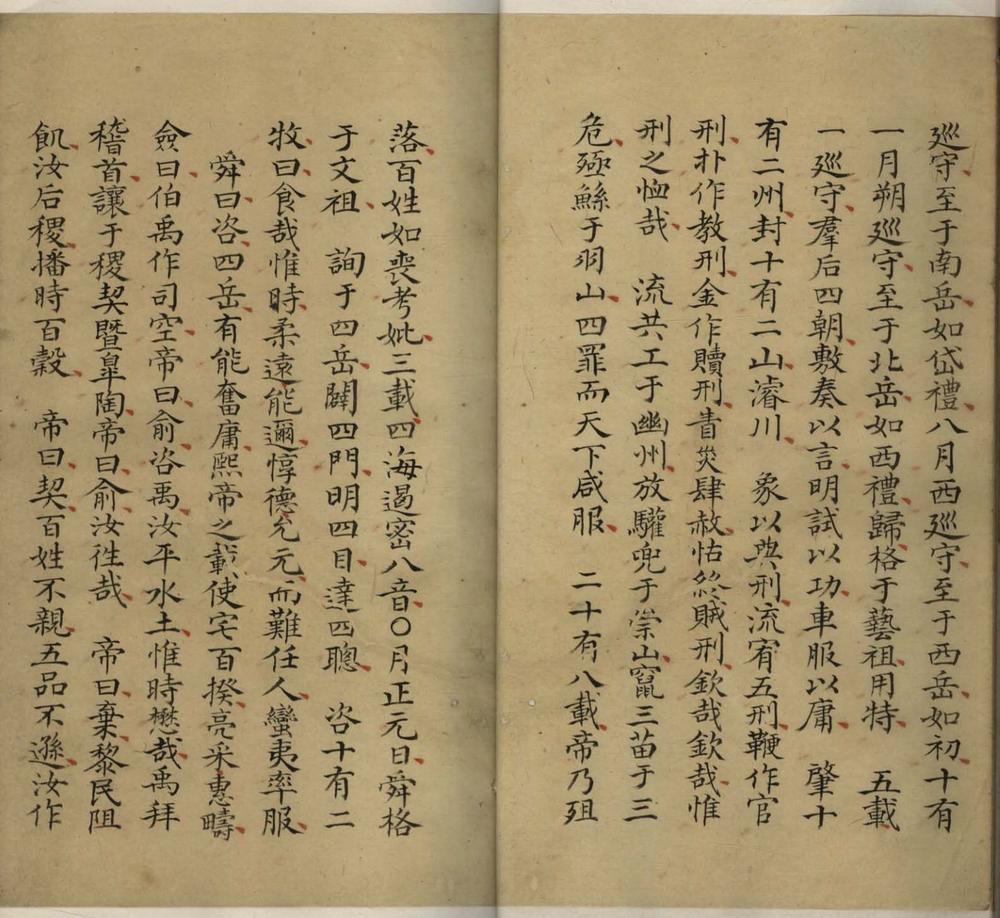 廵守至于南岳如岱禮八月西廵守至于西岳如初十有
一月朔廵守至于北岳如西禮歸格于藝祖用特　五載
一廵守羣后四朝敷奏以言明試以功車服以庸　肇十
有二州封十有二山濬川　象以典刑流宥五刑鞭作官
刑扑作教刑金作贖刑眚災肆赦怙終賊刑欽哉欽哉惟
刑之恤哉　流共工于幽州放驩兜于崇山竄三苗于三
危殛鯀于羽山四罪而天下咸服　二十有八載帝乃殂
落百姓如喪考妣三載四海遏密八音〇月正元日舜格
于文祖　詢于四岳闢四門明四目達四聰　咨十有二
牧曰食哉惟時柔遠能邇惇德允元而難任人蠻夷率服
舜曰咨四岳有能奮庸熙帝之載使宅百揆亮采惠疇
僉曰伯禹作司空帝曰俞咨禹汝平水土惟時懋哉禹拜
稽首讓于稷契暨皐陶帝曰俞汝徃哉　帝曰棄黎民阻
飢汝后稷播時百糓　帝曰契百姓不親五品不遜汝作